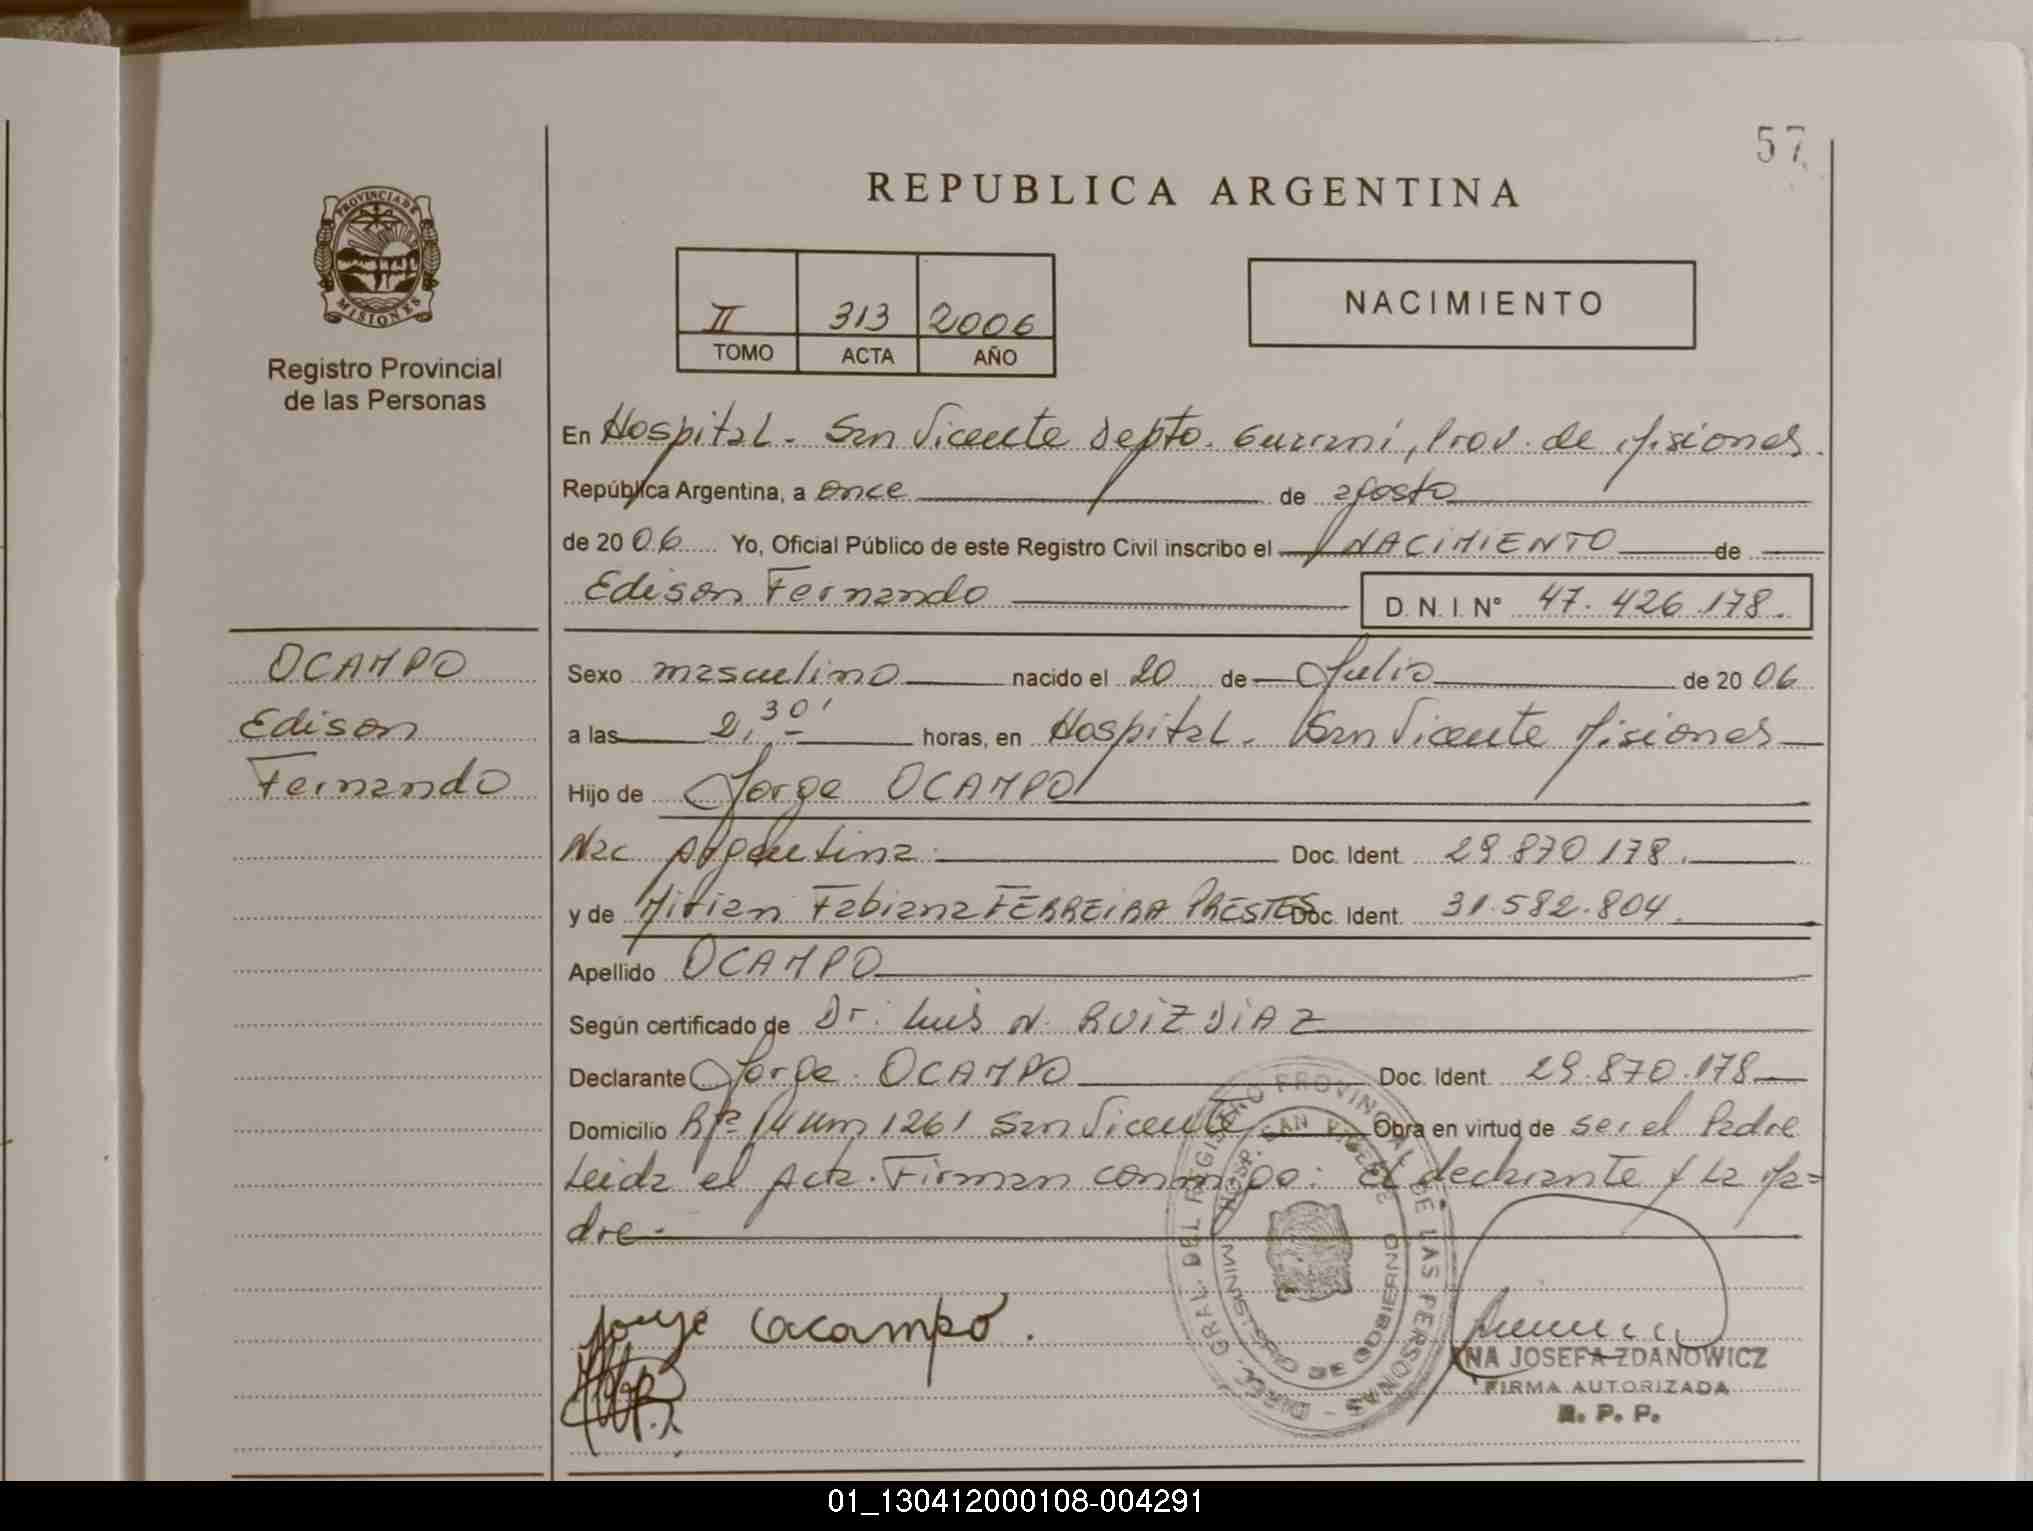 57
REPUBLICA ARGENTINA
PROVINCIA DE
MISIONES
Registro Provincial
de las Personas
II 313 2006
TOMO ACTA AÑO
NACIMIENTO
En Hospital - San Vicente Depto. Guaraní, Prov. de Misiones.
República Argentina, a once de agosto
de 2006 Yo, Oficial Público de este Registro Civil inscribo el NACIMIENTO de
Edison Fernando D.N.I. N° 47.426.178.
OCAMPO
Edison
Fernando
Sexo masculino nacido el 20 de Julio de 2006
a las 2,30' horas, en Hospital - San Vicente Misiones
Hijo de Jorge OCAMPO
Nac Argentina. Doc. Ident. 29.870.178.
y de Mirian Fabiana FERREIRA PRESTES Doc. Ident. 31.582.804.
Apellido OCAMPO
Según certificado de Dr. Luis N. RUIZ DIAZ
Declarante Jorge OCAMPO Doc. Ident. 29.870.178
Domicilio 14 Km 1261 San Vicente Obra en virtud de ser el Padre
Leida el Acta. Firman conmigo: el declarante y la Ma=
dre.
Jorge Ocampo.
DIREC. GRAL. DEL REGISTRO PROVINCIAL DE LAS PERSONAS -
HOSP. SAN VICENTE
MINISTERIO DE GOBIERNO
ANA JOSEFA ZDANOWICZ
FIRMA AUTORIZADA
R. P. P.
01_130412000108-004291